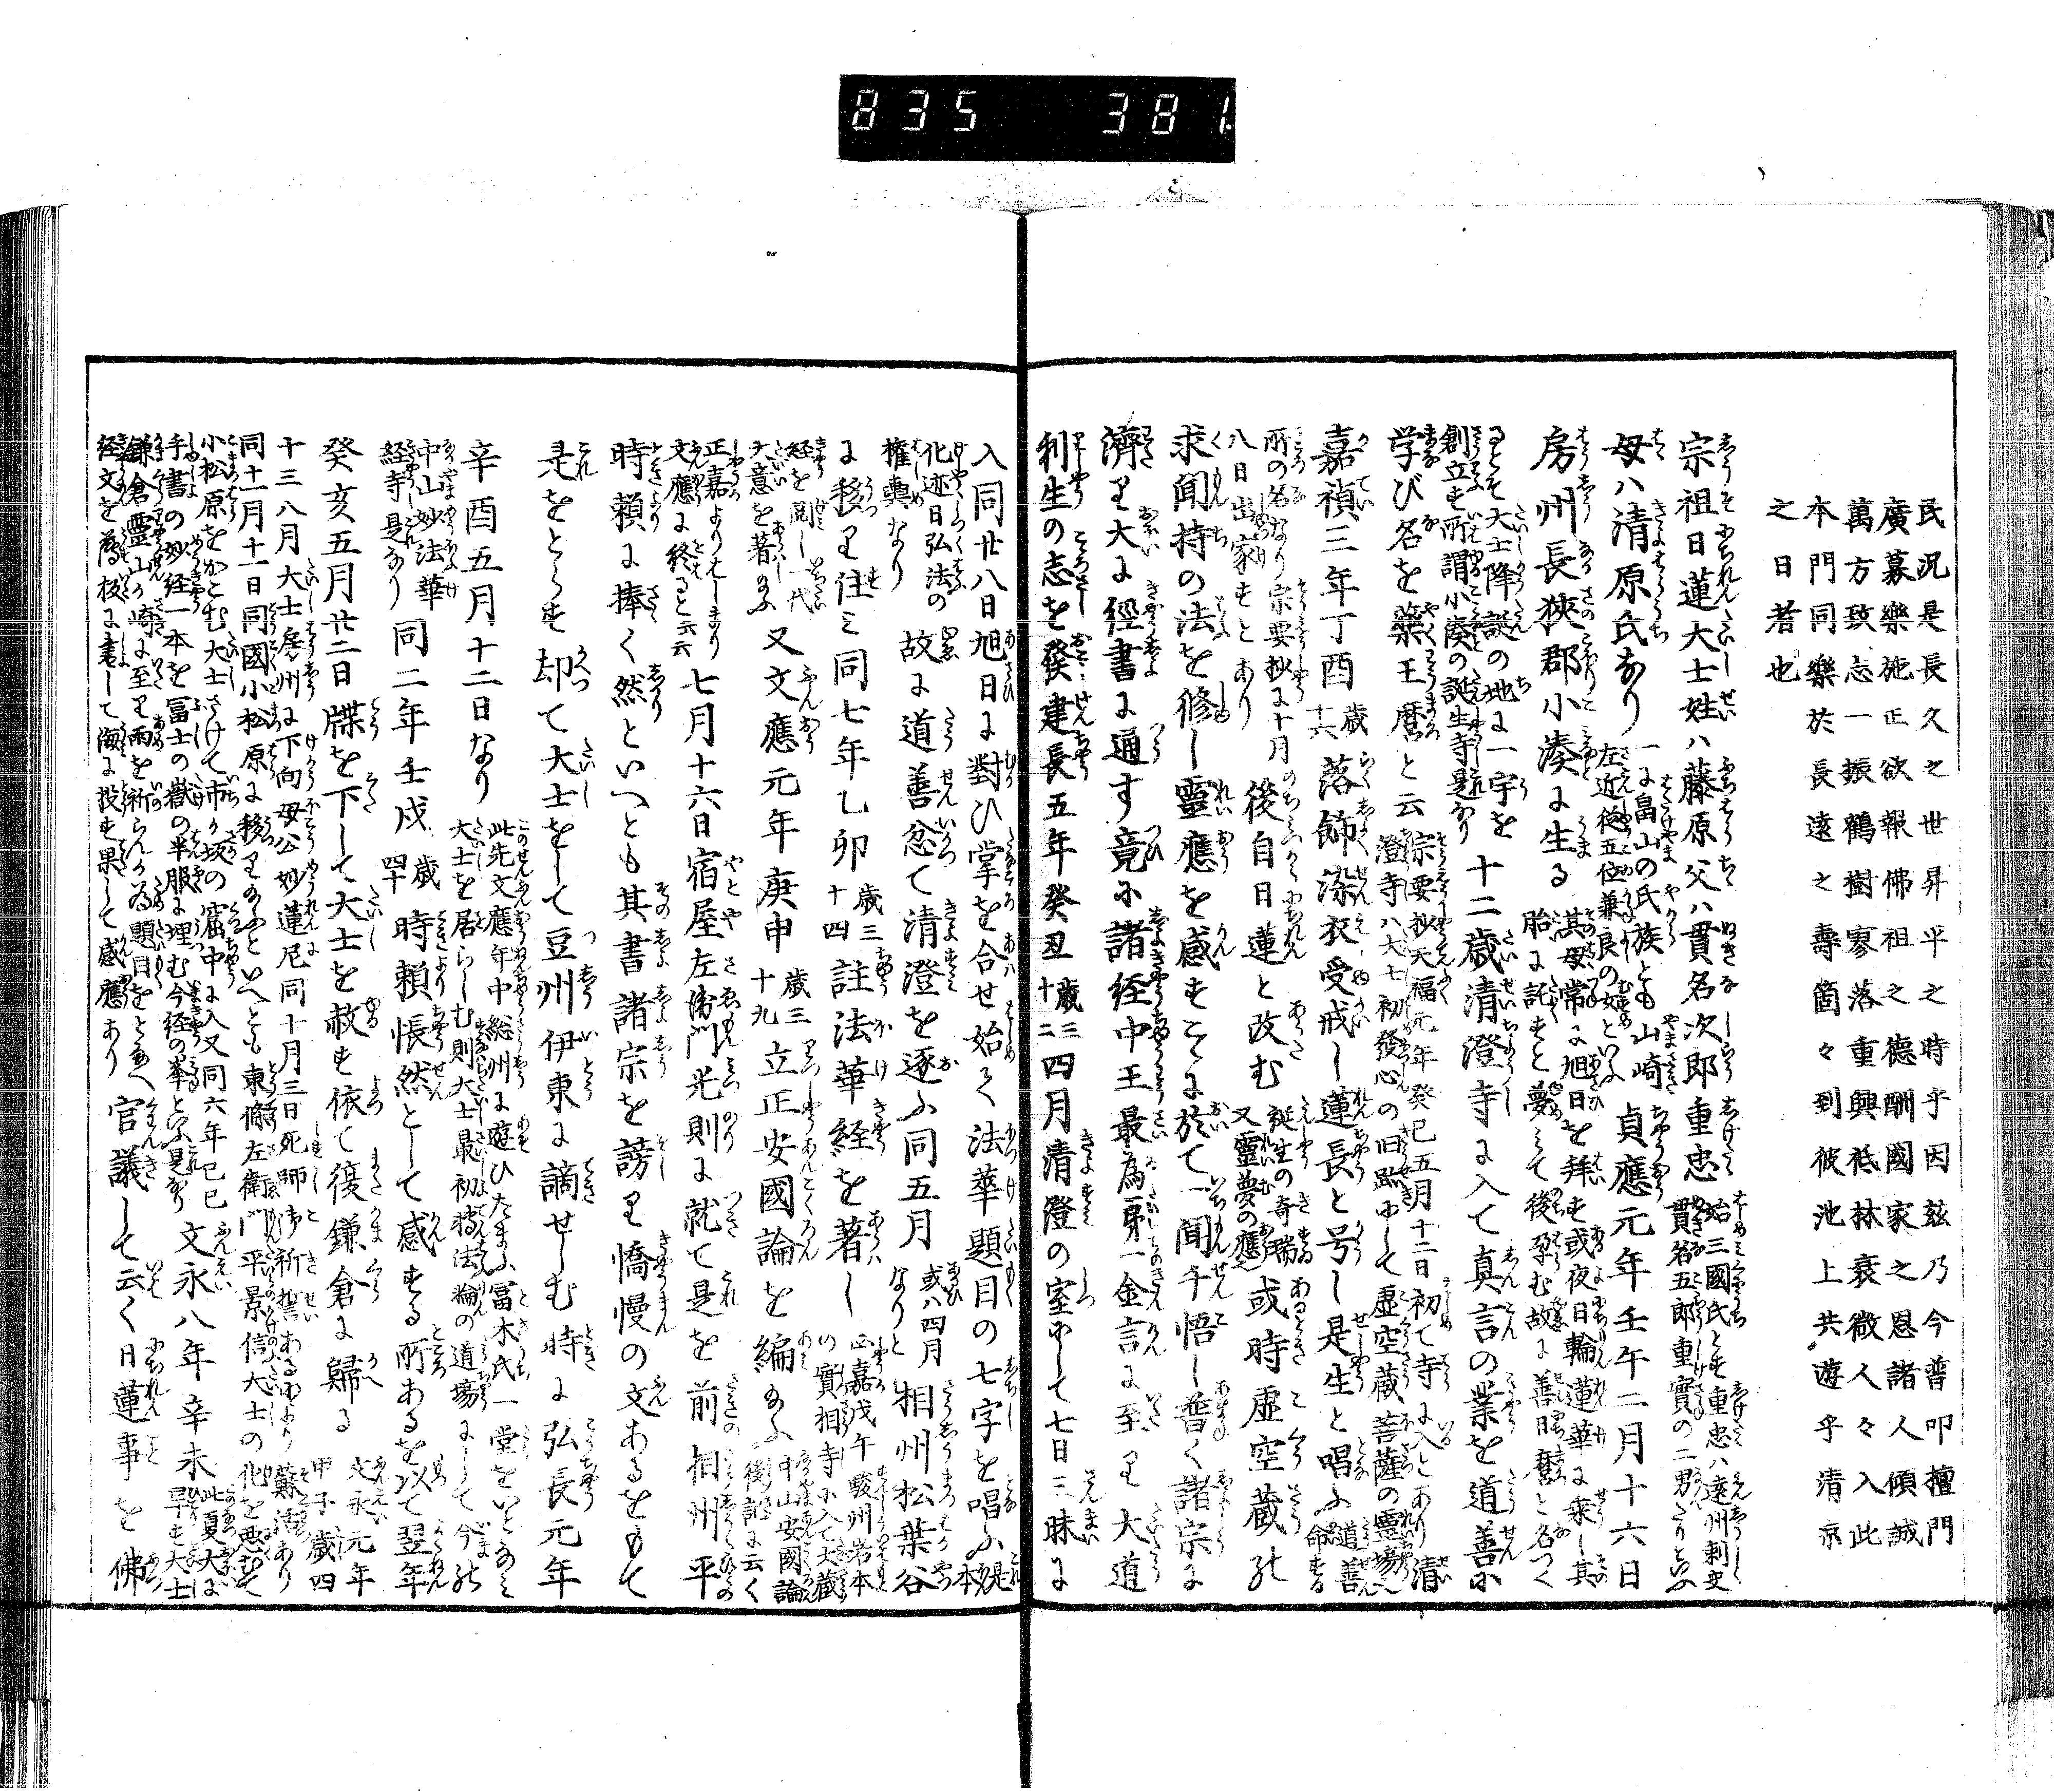 835 381
民況是長久之世昇平之時乎因玆乃今普叩檀門
廣募樂施正欲報佛祖之德酬國家之恩諸人傾誠
萬方致志一振鶴樹寥落重興祇林衰微人々入此
本門同樂於長遠之壽箇々到彼池上共遊乎清凉
之日者也
宗祖日蓮大士姓ハ藤原父ハ貫名次郎重忠
始三國氏とす重忠ハ遠州刺史
貫名五郎重實の二男たりといふ
母ハ清原氏なり
一に畠山の氏族とも山崎
左近将五位兼良の女といふ
貞應元年壬午二月十六日
房州長狹郡小湊に生る
其母常に旭日を拜す或夜日輪蓮華に乘し其
胎に託すと夢ミて後孕む故に善日麿と名つく
りとそ大士降誕の地に一宇を
創立す所謂小湊の誕生寺是なり
十二歳清澄寺に入て真言の業を道善に
学び名を藥王麿と云
宗要抄天福元年癸巳五月十二日初て寺に入とあり清
澄寺ハ大士初發心の旧跡にして虚空蔵菩薩の靈場
嘉禎三年丁酉
歳十六
落飾染衣受戒し蓮長と号し是生と唱ふ
道善
命する
所の名なり宗要抄に十月
八日出家すとあり
後自日蓮と改む
誕生の奇瑞
又靈夢の應
或時虚空蔵に
求聞持の法を修し靈應を感すこゝに於て一聞千悟し普く諸宗に
濟り大に經書に通す竟に諸经中王最為第一金言に至り大道
利生の志を發建長五年癸丑
歳三十二
四月清澄の室中にして七日三昧に
入同廿八日旭日に對ひ掌を合せ始て法華題目の七字を唱ふ
是本
化迹日弘法の
權輿なり
故に道善忿て清澄を逐ふ同五月
或ハ四月なりと
相州松葉谷
に移り住ミ同七年乙卯
歳三十四
註法華経を著し
正嘉戊午駿州岩本
の實相寺に入て大蔵
経を閲し一代
大意を著ふ
又文應元年庚申
歳三十九
立正安國論を編ふ
中山安國論
後記に云く
正嘉よりはしまり
文應に終ると云云
七月十六日宿屋左衛門光則に就て是を前相州平
時頼に捧く然といへとも其書諸宗を謗り憍慢の文あるをもて
是をとらす却て大士をして豆州伊東に謫せしむ時に弘長元年
辛酉五月十二日なり
此先文應年中総州に遊ひたまふ冨木氏一堂をいとなミ
大士を居らしむ則大士最初轉法輪の道場にして今の
中山妙法華
経寺是なり
同二年壬戌
歳四十
時頼悵然として感する所あるを以て翌年
癸亥五月廿二日牒を下して大士を赦す依て復鎌倉に歸る
文永元年
甲子歳四
十三八月大士房州に下向母公妙蓮尼同十月三日死師詩祈誓あるにより蘇活あり
同十一月十一日同國小松原に移りたふといへとも東條左衛門平景信大士の化を惡むて
小松原をかこむ大士さけて市か坂の窟中に入又同六年己巳
手書の妙经一本を冨士の嶽の半服に埋む今经の峯といふ是なり
文永八年辛未
此夏大に
旱す大士
鎌倉靈山か崎に至り雨を祈らんか為題目をとなへ
经文を薄板に書して海に投す果して感應あり
官議して云く日蓮事を佛